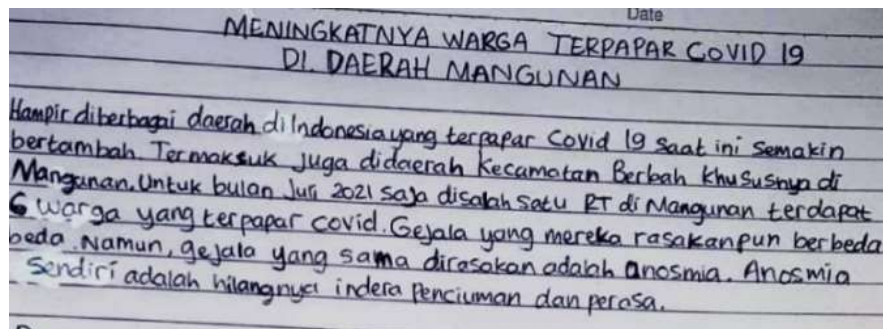 Date
MENINGKATNYA WARGA TERPAPAR COVID 19
DI DAERAH MANGUNAN
Hampir diberbagai daerah di Indonesia yang terpapar Covid 19 saat ini semakin
bertambah. Termaksuk juga didaerah Kecamatan Berbah Khususnya di
Mangunan. Untuk bulan Juni 2021 saja disalah satu RT di Mangunan terdapat
6 warga yang terpapar covid. Gejala yang mereka rasakanpun berbeda
beda. Namun, gejala yang sama dirasakan adalah anosmia. Anosmia
sendiri adalah hilangnya indera Penciuman dan perasa.